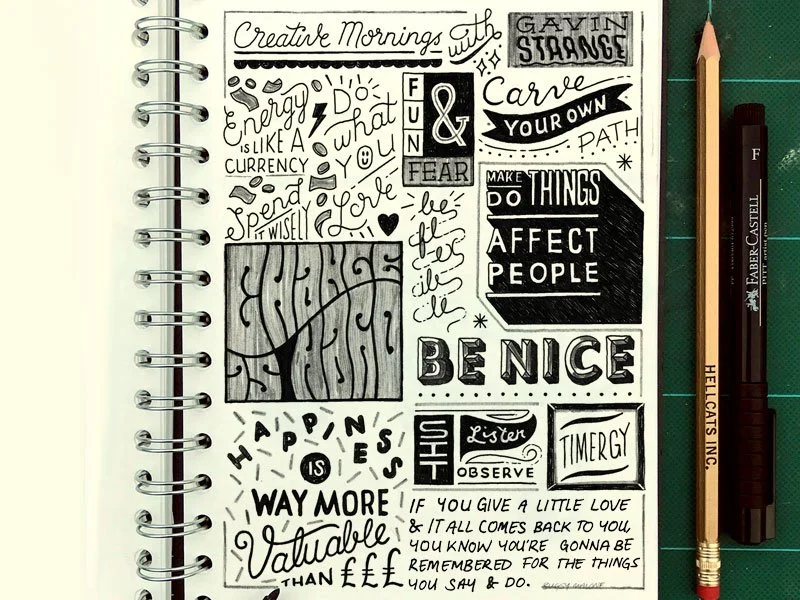 Creative Mornings with
GAVIN
STRANGE
Energy
IS LIKE A
CURRENCY
Spend
IT WISELY
DO
what
YOU
Love
FUN
&
FEAR
Carve
YOUR OWN
PATH
be
fl
ex
ib
le
MAKE
DO THINGS
AFFECT
PEOPLE
CHANGE
BE NICE
HAPPINESS
IS
WAY MORE
Valuable
THAN £££
SIT
Listen
OBSERVE
TIMERGY
IF YOU GIVE A LITTLE LOVE
& IT ALL COMES BACK TO YOU,
YOU KNOW YOU'RE GONNA BE
REMEMBERED FOR THE THINGS
YOU SAY & DO. BUGSY MALONE
HELLCATS INC.
F
FABER-CASTELL